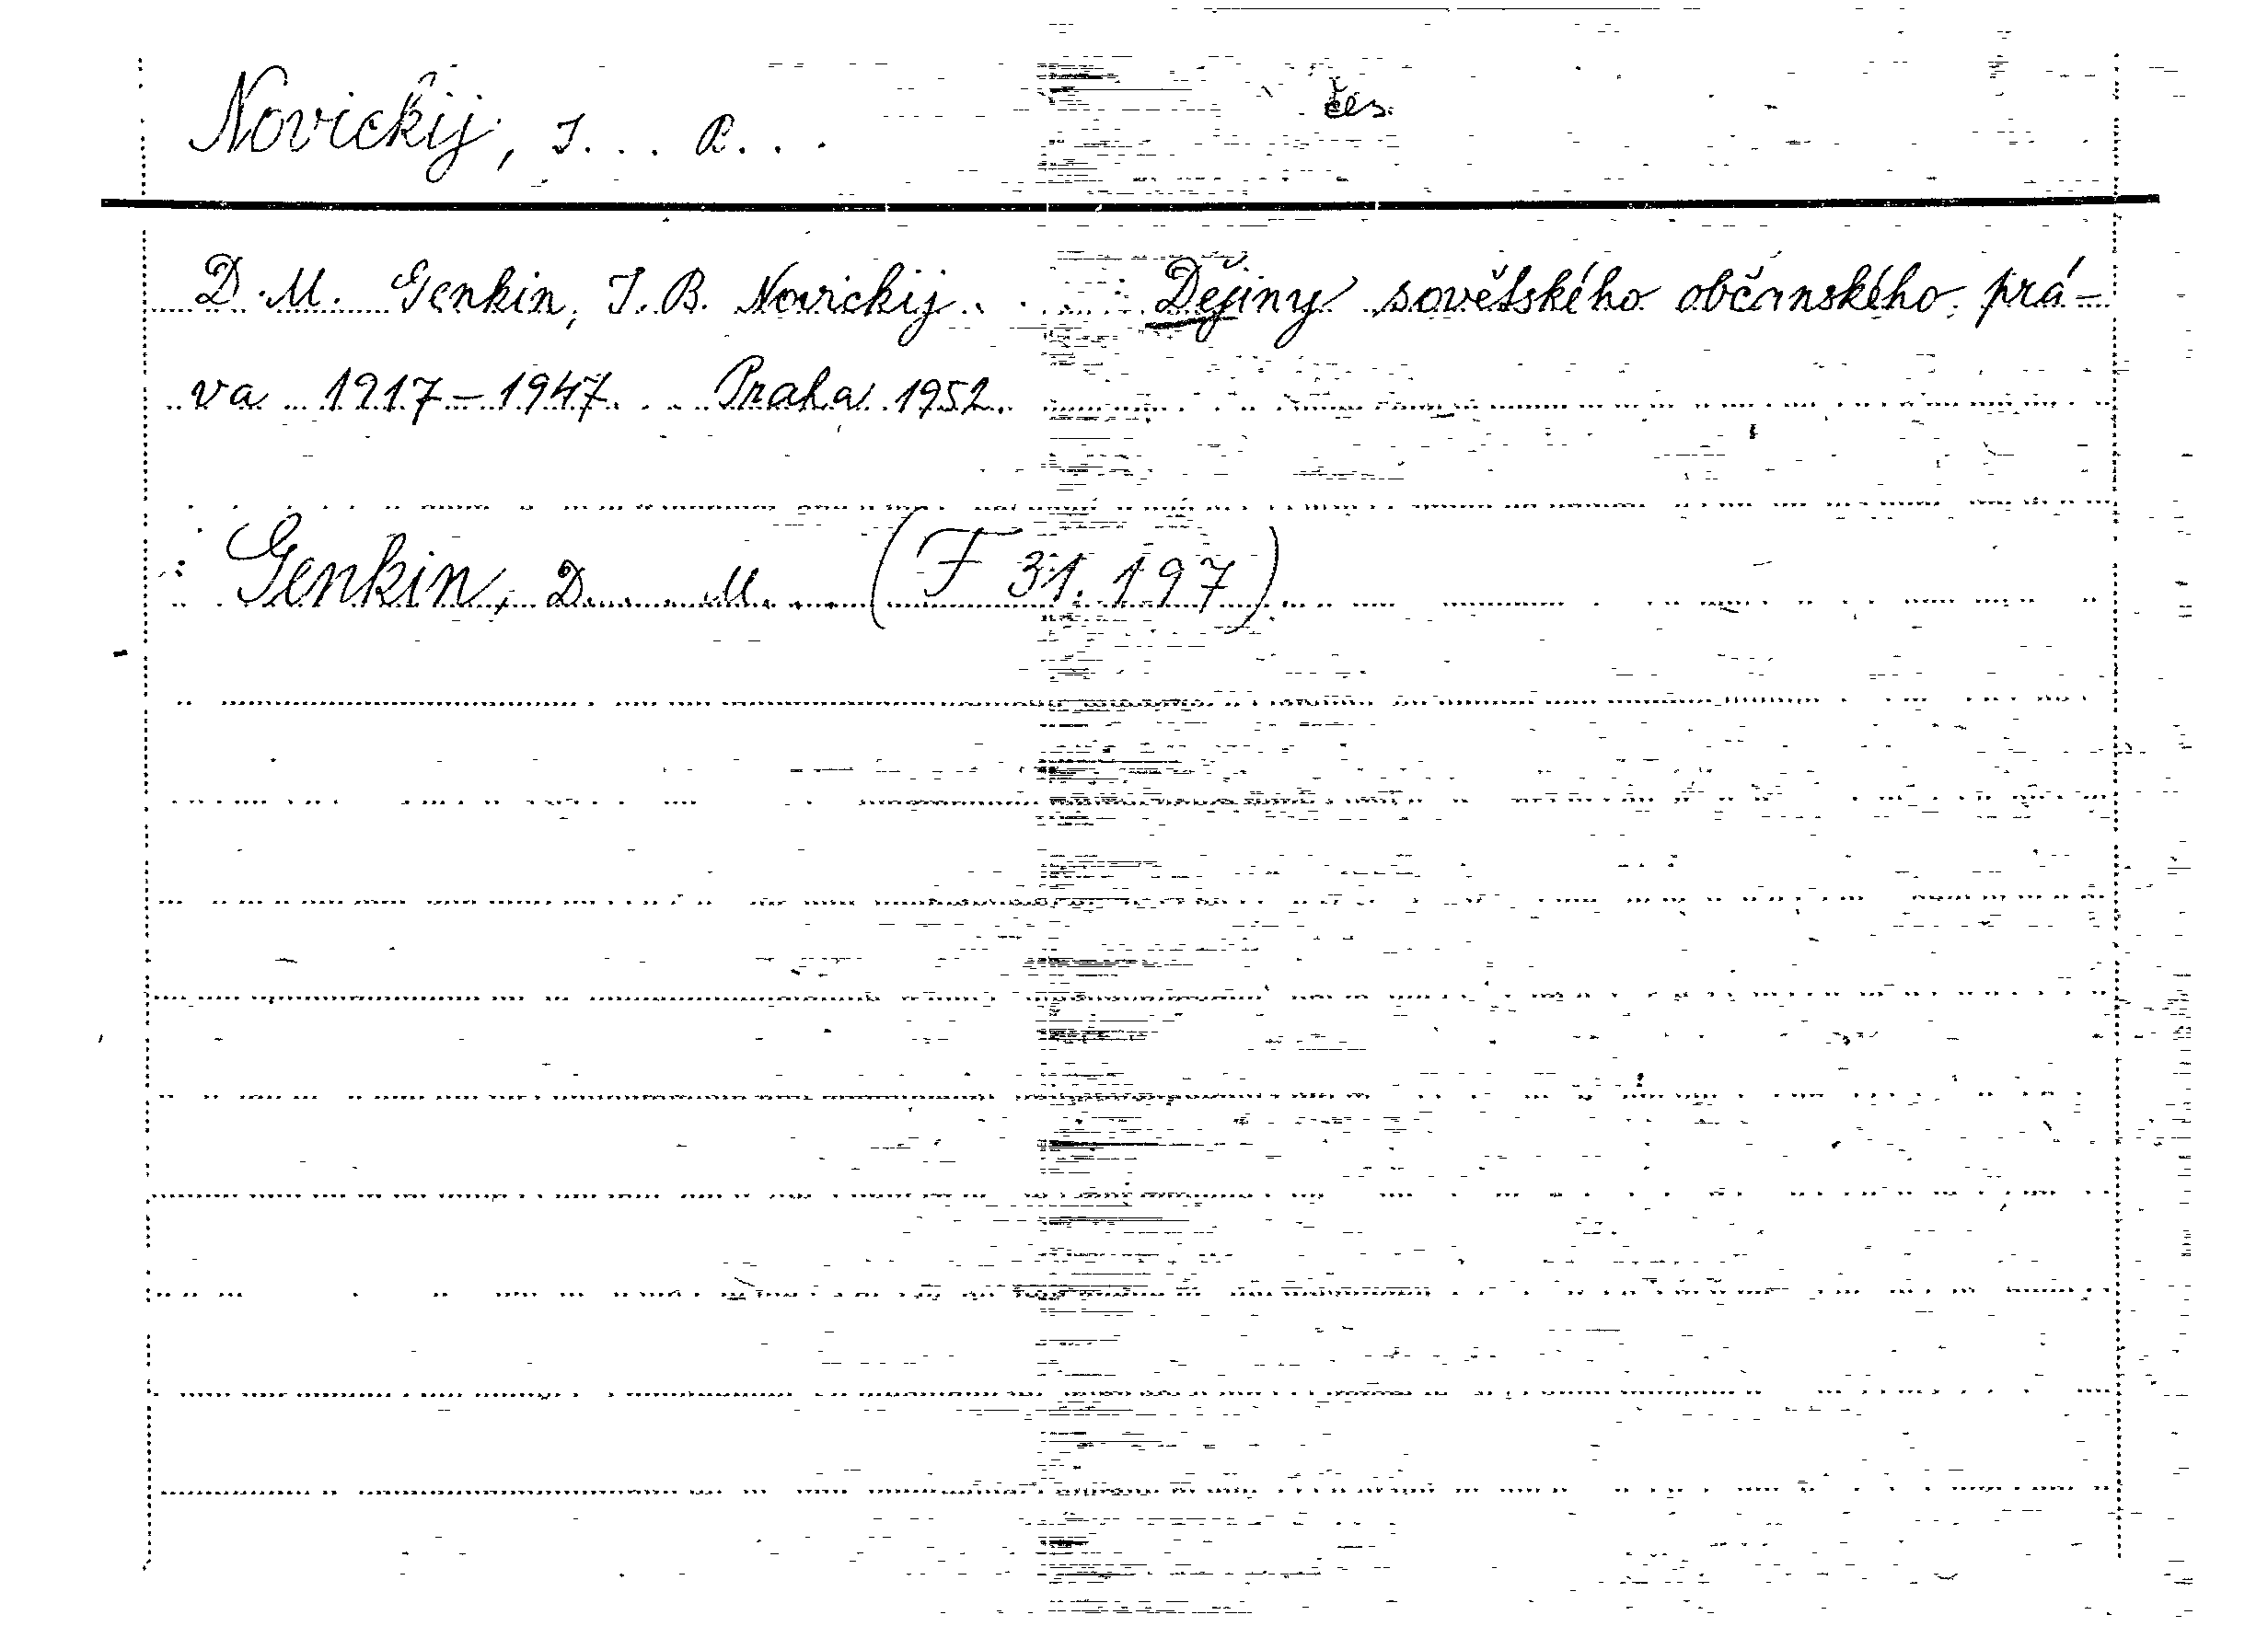 Novickij, I... B... čes.
D.M. Genkin, I.B. Novickij. Dějiny sovětského občanského prá-
va 1917-1947. Praha 1952.
: Genkin, D... M... (F 31.197)